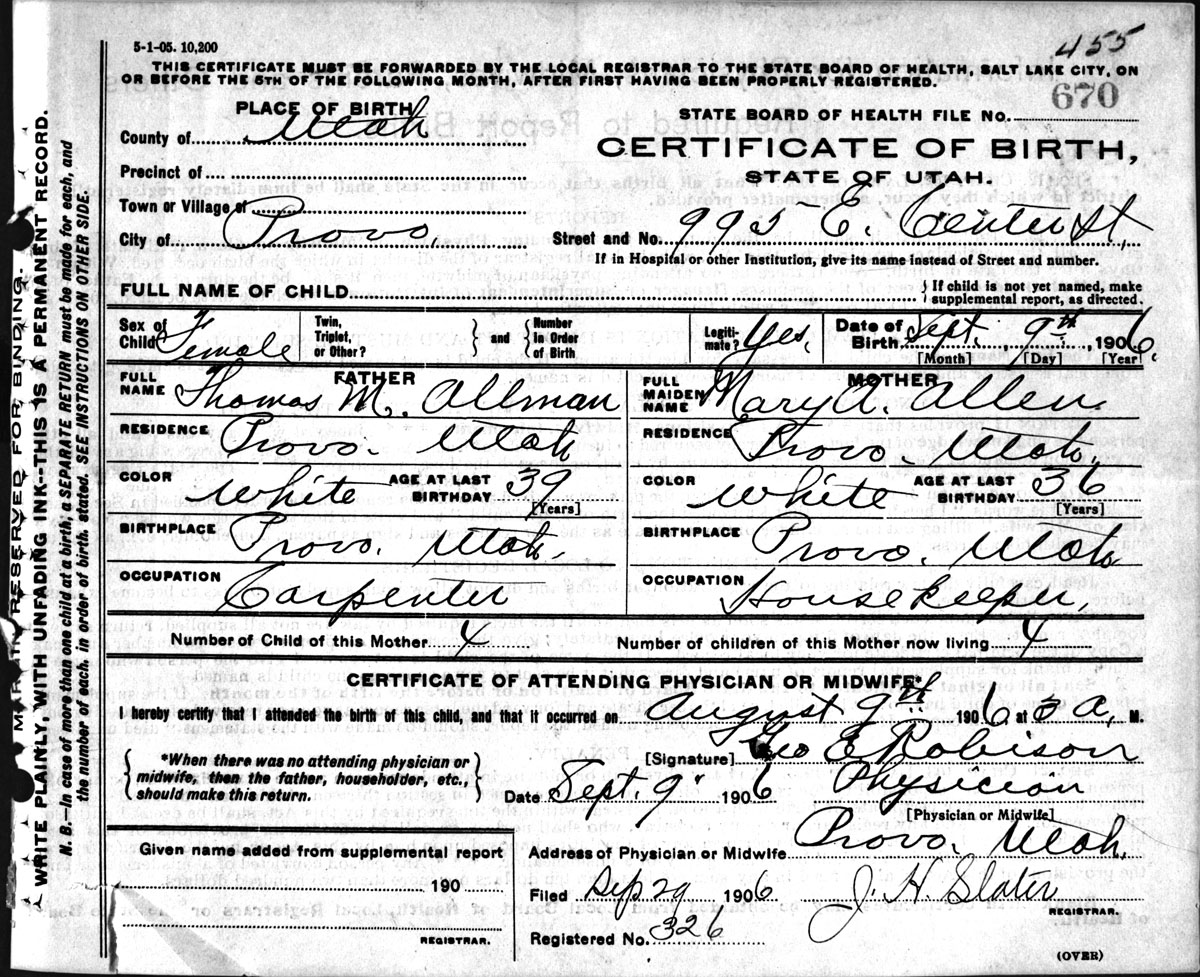 455
5-1-05. 10,200
THIS CERTIFICATE MUST BE FORWARDED BY THE LOCAL REGISTRAR TO THE STATE BOARD OF HEALTH, SALT LAKE CITY, ON
OR BEFORE THE 5TH OF THE FOLLOWING MONTH, AFTER FIRST HAVING BEEN PROPERLY REGISTERED.
670
PLACE OF BIRTH
STATE BOARD OF HEALTH FILE NO.
County of Utah
CERTIFICATE OF BIRTH,
Precinct of
STATE OF UTAH.
Town or Village of
City of Provo,
Street and No. 995 E. Center St,
If in Hospital or other Institution, give its name instead of Street and number.
FULL NAME OF CHILD
If child is not yet named, make
supplemental report, as directed.
Sex of Child Female
Twin, Triplet, or Other?
and
Number In Order of Birth
Legiti-mate? Yes,
Date of Birth Sept. 9th, 1906.
[Month] [Day] [Year]
FATHER
FULL NAME Thomas M. Allman
MOTHER
FULL MAIDEN NAME Mary A. Allen.
RESIDENCE Provo. Utah
RESIDENCE Provo. Utah.
COLOR White AGE AT LAST BIRTHDAY 39
[Years]
COLOR White AGE AT LAST BIRTHDAY 36
[Years]
BIRTHPLACE Provo. Utah.
BIRTHPLACE Provo. Utah
OCCUPATION Carpenter
OCCUPATION Housekeeper,
Number of Child of this Mother 4
Number of children of this Mother now living 4
CERTIFICATE OF ATTENDING PHYSICIAN OR MIDWIFE*
I hereby certify that I attended the birth of this child, and that it occurred on August 9th 1906 at 3 a, M.
*When there was no attending physician or
midwife, then the father, householder, etc.,
should make this return.
[Signature] Geo E Robison
Date Sept. 9 1906 Physician
[Physician or Midwife]
Given name added from supplemental report
190
REGISTRAR.
Address of Physician or Midwife Provo. Utah.
Filed Sep 29 1906 J. H. Slater
REGISTRAR.
Registered No. 326
(OVER)
MARGIN RESERVED FOR BINDING.
WRITE PLAINLY, WITH UNFADING INK--THIS IS A PERMANENT RECORD.
N. B.—In case of more than one child at a birth, a SEPARATE RETURN must be made for each, and
the number of each, in order of birth, stated. SEE INSTRUCTIONS ON OTHER SIDE.